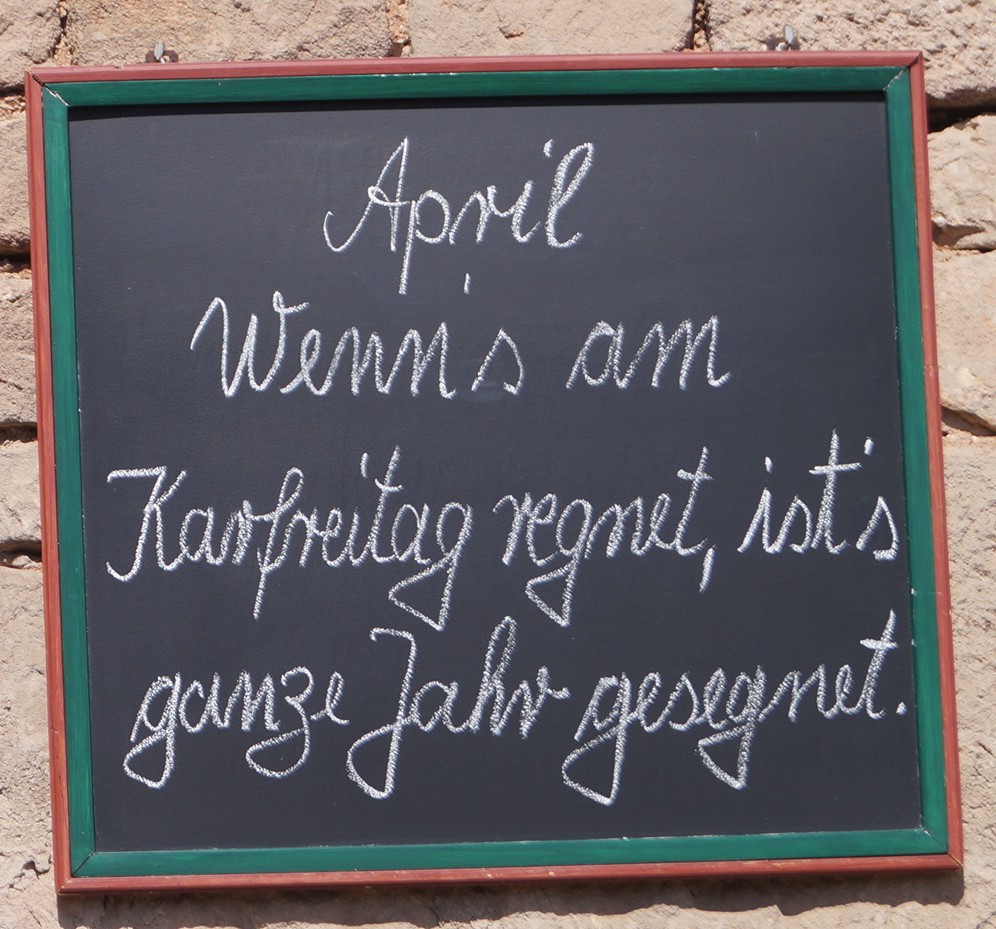 April
Wenn's am
Karfreitag regnet, ist's
ganze Jahr gesegnet.